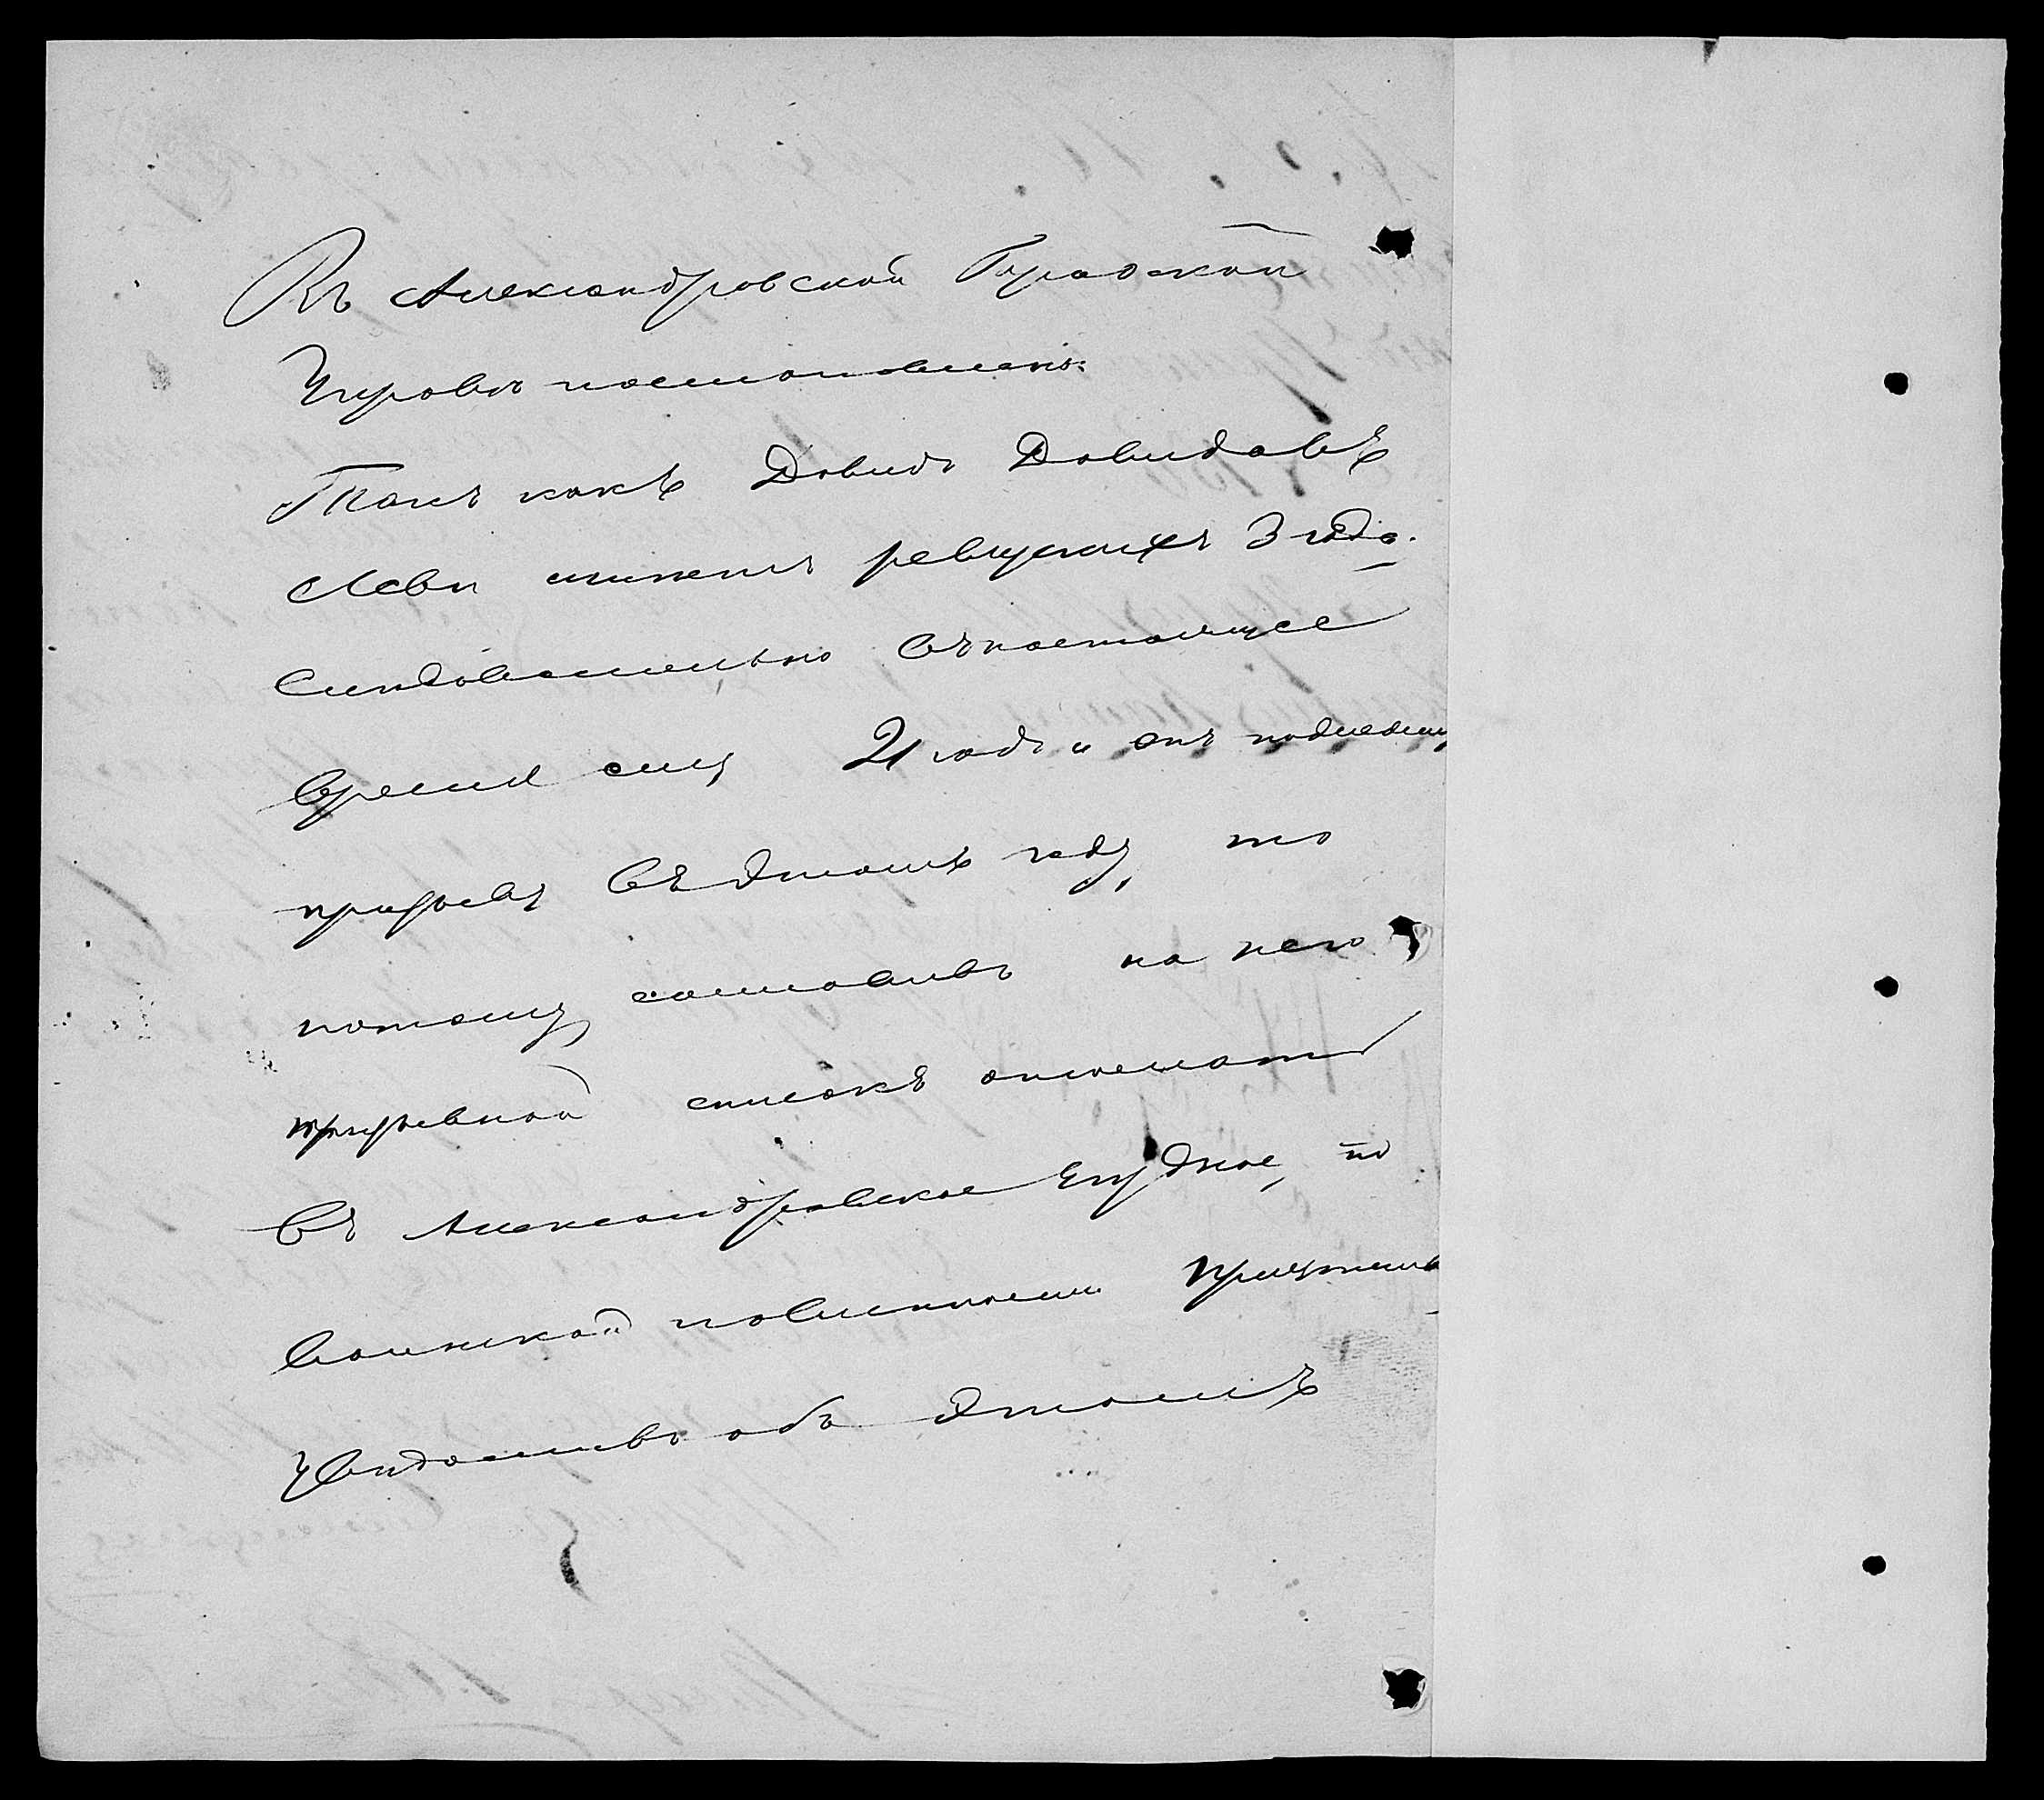 Въ Александровской Городской
Управѣ постановлено:
Такъ какъ Довидъ Довидовъ
Леви имѣетъ ревизскихъ 3 года.
Слѣдовательно въ настоящее
время ему 21 годъ и онъ подлежитъ
призыву въ этомъ году, то
потому составивъ на него
призывной списокъ отослать
въ Александровское Уѣздное, по
воинской повинности Присутствіе
увѣдомивъ объ этомъ